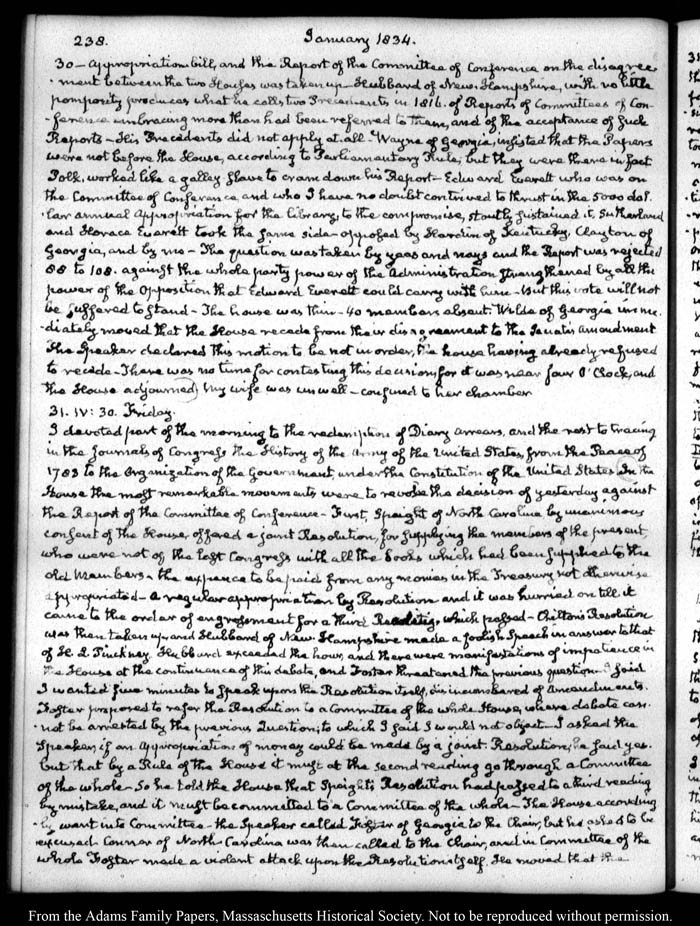 238. January 1834.
30 - Appropriation bill, and the Report of the Committee of Conference on the disagree
-ment between the two Houses was taken up - Hubbard of New-Hampshire, with no little
pomposity produces what he calls two Precedents in 1816. of Reports of Committees of Con-
-ference embracing more than had been referred to them, and of the acceptance of such
Reports - His Precedents did not apply at all - Wayne of Georgia, insisted that the Papers
were not before the House, according to Parliamentary Rule, but they were there in fact
Polk, worked like a galley slave to cram down his Report - Edward Everett who was on
the Committee of Conference, and who I have no doubt contrived to thrust in the 5000 dol.
-lar annual Appropriation for the library, to the compromise, stoutly sustained it, Sutherland
and Horace Everett took the same side - opposed by Hardin of Kentucky, Clayton of
Georgia, and by me - The question was taken by yeas and nays and the Report was rejected
88 to 108. against the whole party power of the Administration strengthened by all the
power of the Opposition that Edward Everett could carry with him - But this vote will not
be suffered to stand - The house was thin - 40 members absent. Wilde of Georgia imme.
-diately moved that the House recede from their disagreement to the Senate's amendment
The Speaker declared this motion to be not in order, the house having already refused
to recede - There was no time for contesting this decision, for it was near four O'Clock, and
the House adjourned, My wife was unwell - confined to her chamber
31. IV: 30. Friday.
I devoted part of the morning to the redemption of Diary arrears, and the rest to tracing
in the Journals of Congress the History of the Army of the United States, from the Peace of
1783 to the Organization of the Government, under the Constitution of the United States In the
House the most remarkable movements were to revoke the decision of yesterday against
the Report of the Committee of Conference - First, Speight of North Carolina by unanimous
consent of the House, offered a joint Resolution, for supplying the members of the present,
who were not of the last Congress with all the books which had been supplied to the
old Members - the expence to be paid from any monies in the Treasury not otherwise
appropriated - A regular appropriation by Resolution and it was hurried on till it
came to the order of engrossment for a third Reading, which passed - Chilton's Resolution
was then taken up and Hubbard of New Hampshire made a foolish Speech in answer to that
of H. L. Pinckney Hubbard exceeded the hour, and there were manifestations of impatience in
the House at the continuance of this debate, and Foster threatened the previous question - I said
I wanted five minutes to speak upon the Resolution itself, disincumbered of Amendments.
Foster proposed to refer the Resolution to a Committee of the whole House, where debate can
-not be arrested by the previous Question; to which I said I would not object - I asked the
Speaker, if an Appropriation of money could be made by a joint Resolution; he said yes.
but that by a Rule of the House it must at the second reading go through a Committee
of the whole - So he told the House that Speight's Resolution had passed to a third reading
by mistake, and it must be committed to a Committee of the whole - The House according
-ly went into Committee - the Speaker called Foster of Georgia to the Chair, but he asked to be
excused Connor of North-Carolina was then called to the Chair, and in Committee of the
whole Foster made a violent attack upon the Resolution itself. He moved that the
From the Adams Family Papers, Massachusetts Historical Society. Not to be reproduced without permission.